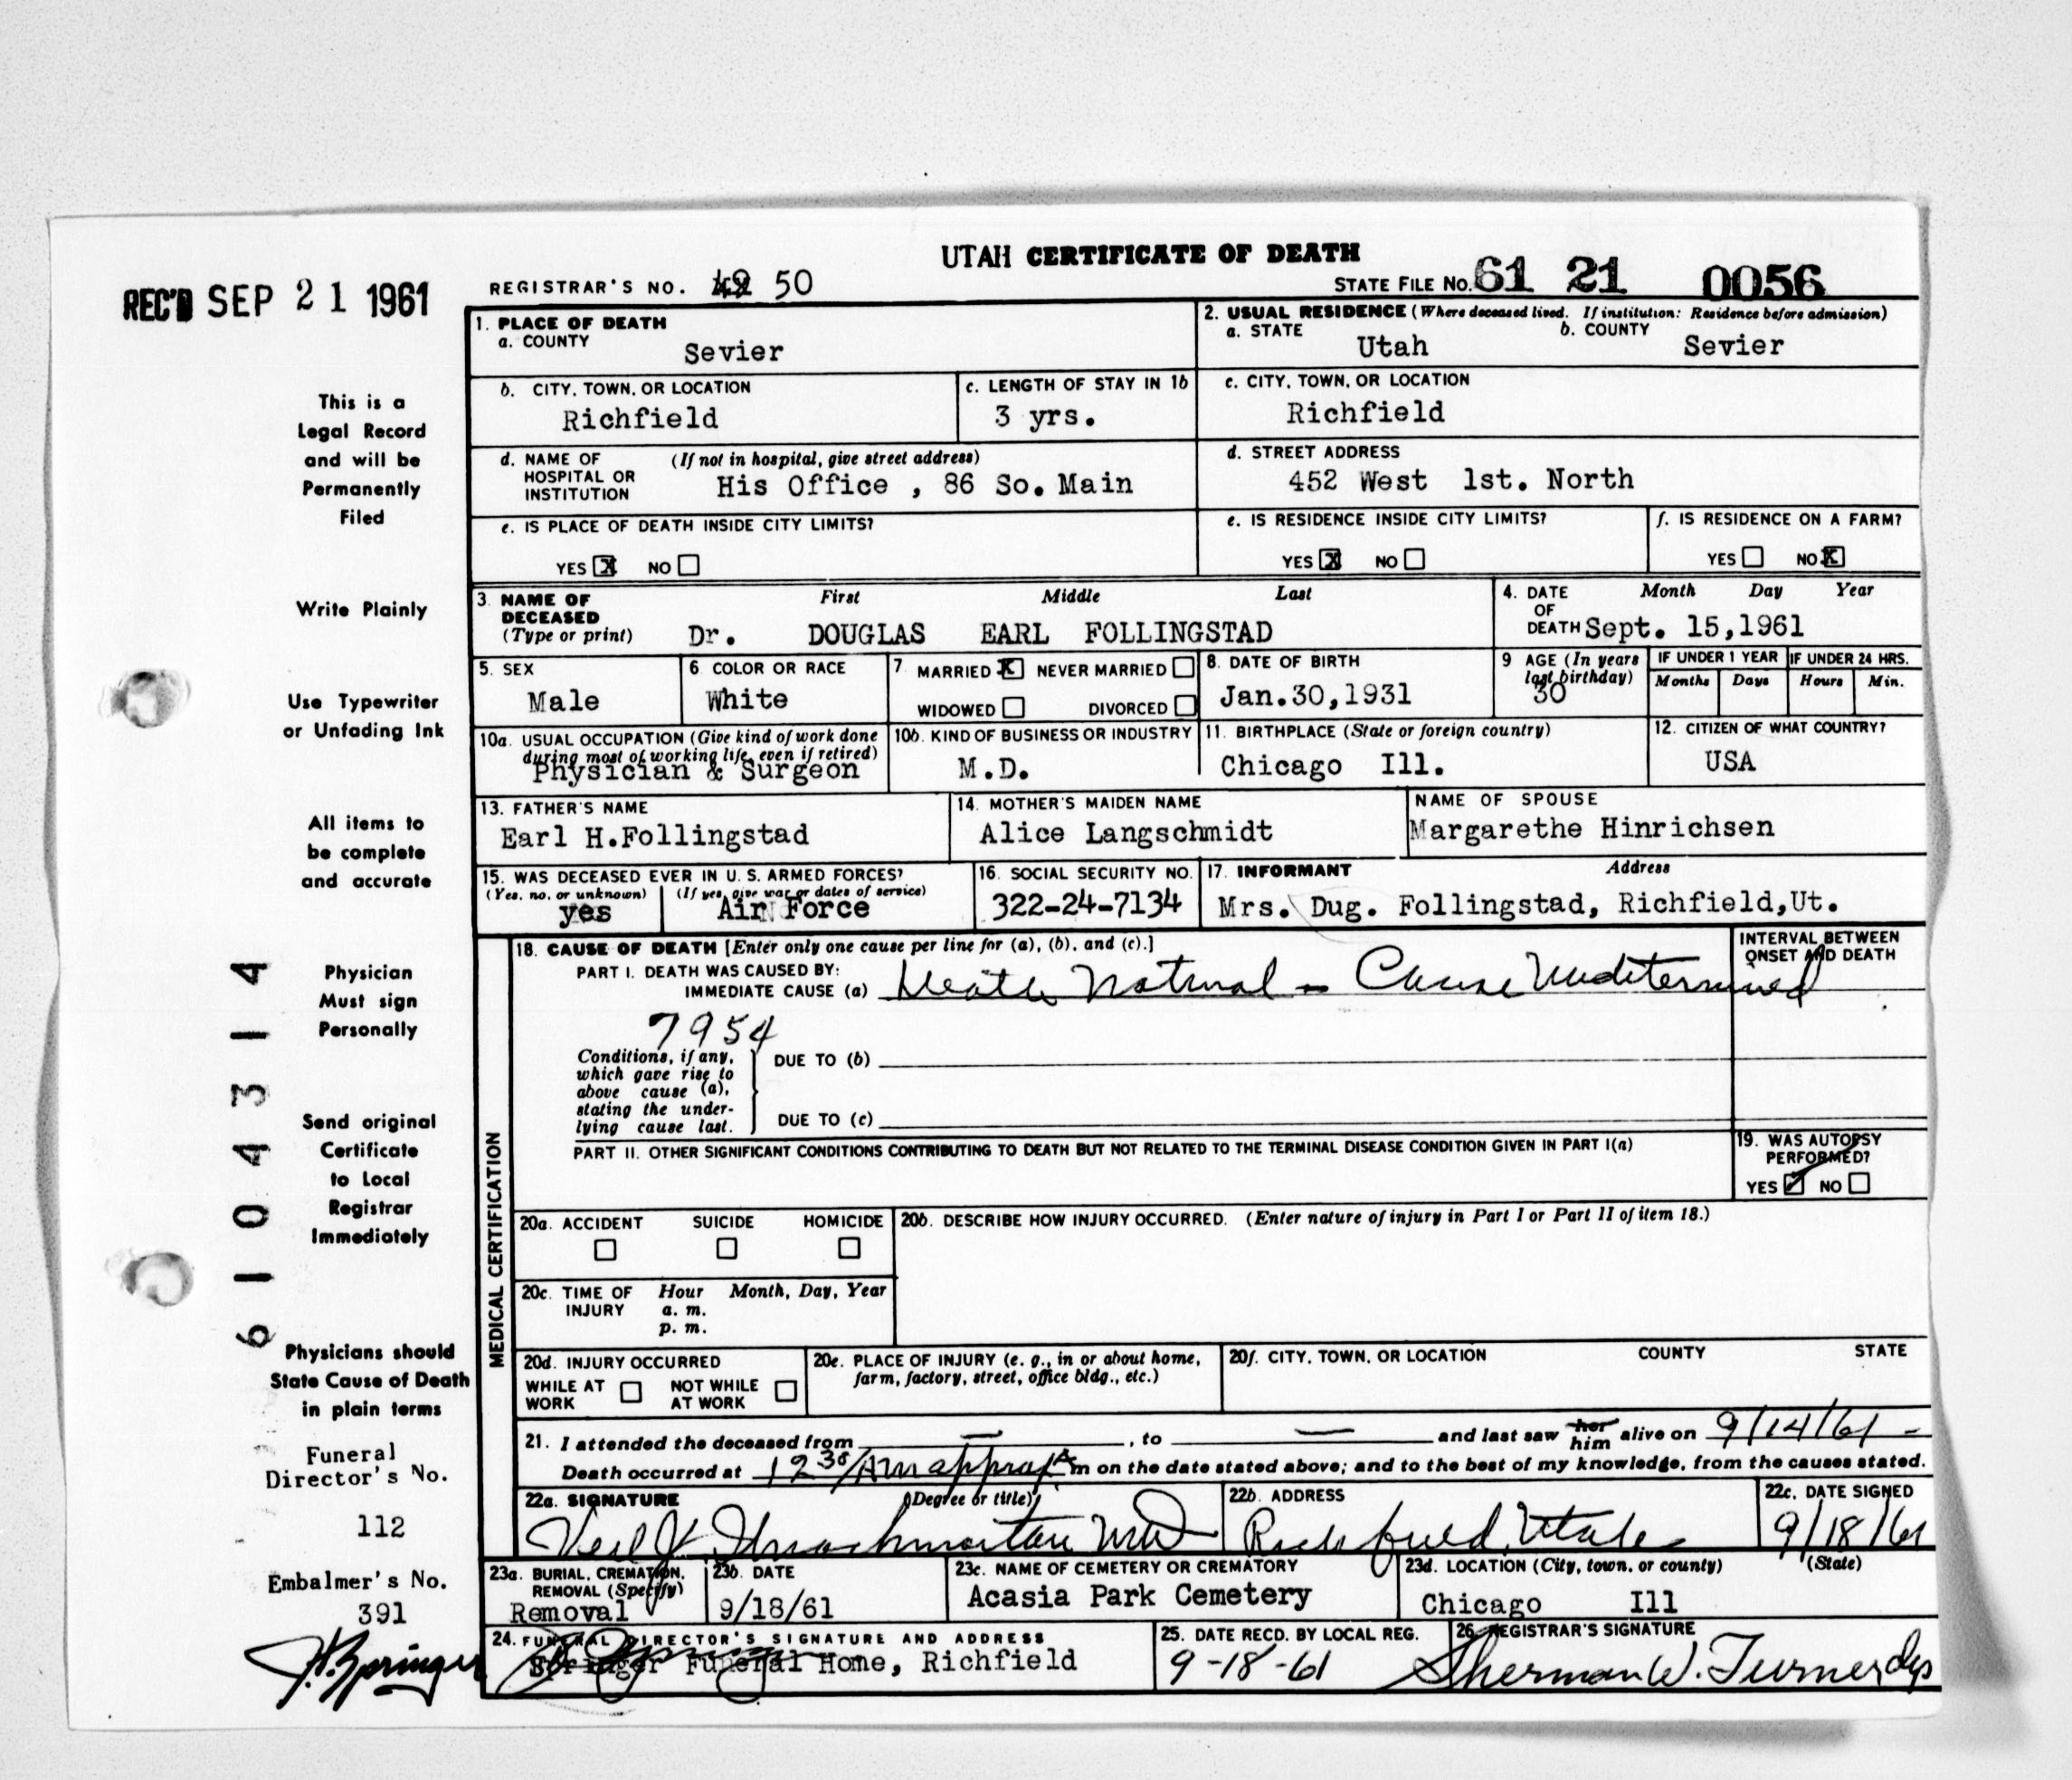 UTAH CERTIFICATE OF DEATH
REC'D SEP 21 1961
REGISTRAR'S NO. 49 50
STATE FILE NO. 61 21 0056
This is a
Legal Record
and will be
Permanently
Filed
Write Plainly
Use Typewriter
or Unfading Ink
All items to
be complete
and accurate
Physician
Must sign
Personally
Send original
Certificate
to Local
Registrar
Immediately
Physicians should
State Cause of Death
in plain terms
Funeral
Director's No.
112
Embalmer's No.
391
6104314
1. PLACE OF DEATH
a. COUNTY
Sevier
2. USUAL RESIDENCE (Where deceased lived. If institution: Residence before admission)
a. STATE b. COUNTY
Utah Sevier
b. CITY, TOWN, OR LOCATION
Richfield
c. LENGTH OF STAY IN 1b
3 yrs.
c. CITY, TOWN, OR LOCATION
Richfield
d. NAME OF HOSPITAL OR INSTITUTION (If not in hospital, give street address)
His Office , 86 So. Main
d. STREET ADDRESS
452 West 1st. North
e. IS PLACE OF DEATH INSIDE CITY LIMITS?
YES X NO
e. IS RESIDENCE INSIDE CITY LIMITS?
YES X NO
f. IS RESIDENCE ON A FARM?
YES NO X
3. NAME OF DECEASED (Type or print) First Middle Last
Dr. DOUGLAS EARL FOLLINGSTAD
4. DATE OF DEATH Month Day Year
Sept. 15,1961
5. SEX
Male
6. COLOR OR RACE
White
7. MARRIED X NEVER MARRIED
WIDOWED DIVORCED
8. DATE OF BIRTH
Jan.30,1931
9 AGE (In years last birthday)
30
IF UNDER 1 YEAR IF UNDER 24 HRS.
Months Days Hours Min.
10a. USUAL OCCUPATION (Give kind of work done during most of working life, even if retired)
Physician & Surgeon
10b. KIND OF BUSINESS OR INDUSTRY
M.D.
11. BIRTHPLACE (State or foreign country)
Chicago Ill.
12. CITIZEN OF WHAT COUNTRY?
USA
13. FATHER'S NAME
Earl H.Follingstad
14. MOTHER'S MAIDEN NAME
Alice Langschmidt
NAME OF SPOUSE
Margarethe Hinrichsen
15. WAS DECEASED EVER IN U. S. ARMED FORCES?
(Yes, no, or unknown) (If yes, give war or dates of service)
yes Air Force
16. SOCIAL SECURITY NO.
322-24-7134
17. INFORMANT Address
Mrs. Dug. Follingstad, Richfield,Ut.
MEDICAL CERTIFICATION
18. CAUSE OF DEATH [Enter only one cause per line for (a), (b), and (c).]
INTERVAL BETWEEN ONSET AND DEATH
PART I. DEATH WAS CAUSED BY:
IMMEDIATE CAUSE (a) Death Natural - Cause Undetermined
7954
Conditions, if any, which gave rise to above cause (a), stating the underlying cause last.
DUE TO (b)
DUE TO (c)
PART II. OTHER SIGNIFICANT CONDITIONS CONTRIBUTING TO DEATH BUT NOT RELATED TO THE TERMINAL DISEASE CONDITION GIVEN IN PART I(a)
19. WAS AUTOPSY PERFORMED?
YES ✓ NO
20a. ACCIDENT SUICIDE HOMICIDE
20b. DESCRIBE HOW INJURY OCCURRED. (Enter nature of injury in Part I or Part II of item 18.)
20c. TIME OF INJURY Hour Month, Day, Year
a. m.
p. m.
20d. INJURY OCCURRED
WHILE AT WORK NOT WHILE AT WORK
20e. PLACE OF INJURY (e. g., in or about home, farm, factory, street, office bldg., etc.)
20f. CITY, TOWN, OR LOCATION COUNTY STATE
21. I attended the deceased from — , to — and last saw her him alive on 9/14/61 -
Death occurred at 12 30 AM approx m on the date stated above; and to the best of my knowledge, from the causes stated.
22a. SIGNATURE (Degree or title)
MD
22b. ADDRESS
Richfield, Utah
22c. DATE SIGNED
9/18/61
23a. BURIAL, CREMATION, REMOVAL (Specify)
Removal
23b. DATE
9/18/61
23c. NAME OF CEMETERY OR CREMATORY
Acasia Park Cemetery
23d. LOCATION (City, town, or county) (State)
Chicago Ill
24. FUNERAL DIRECTOR'S SIGNATURE AND ADDRESS
Springer Funeral Home, Richfield
25. DATE RECD. BY LOCAL REG.
9-18-61
26. REGISTRAR'S SIGNATURE
Sherman W. Turner